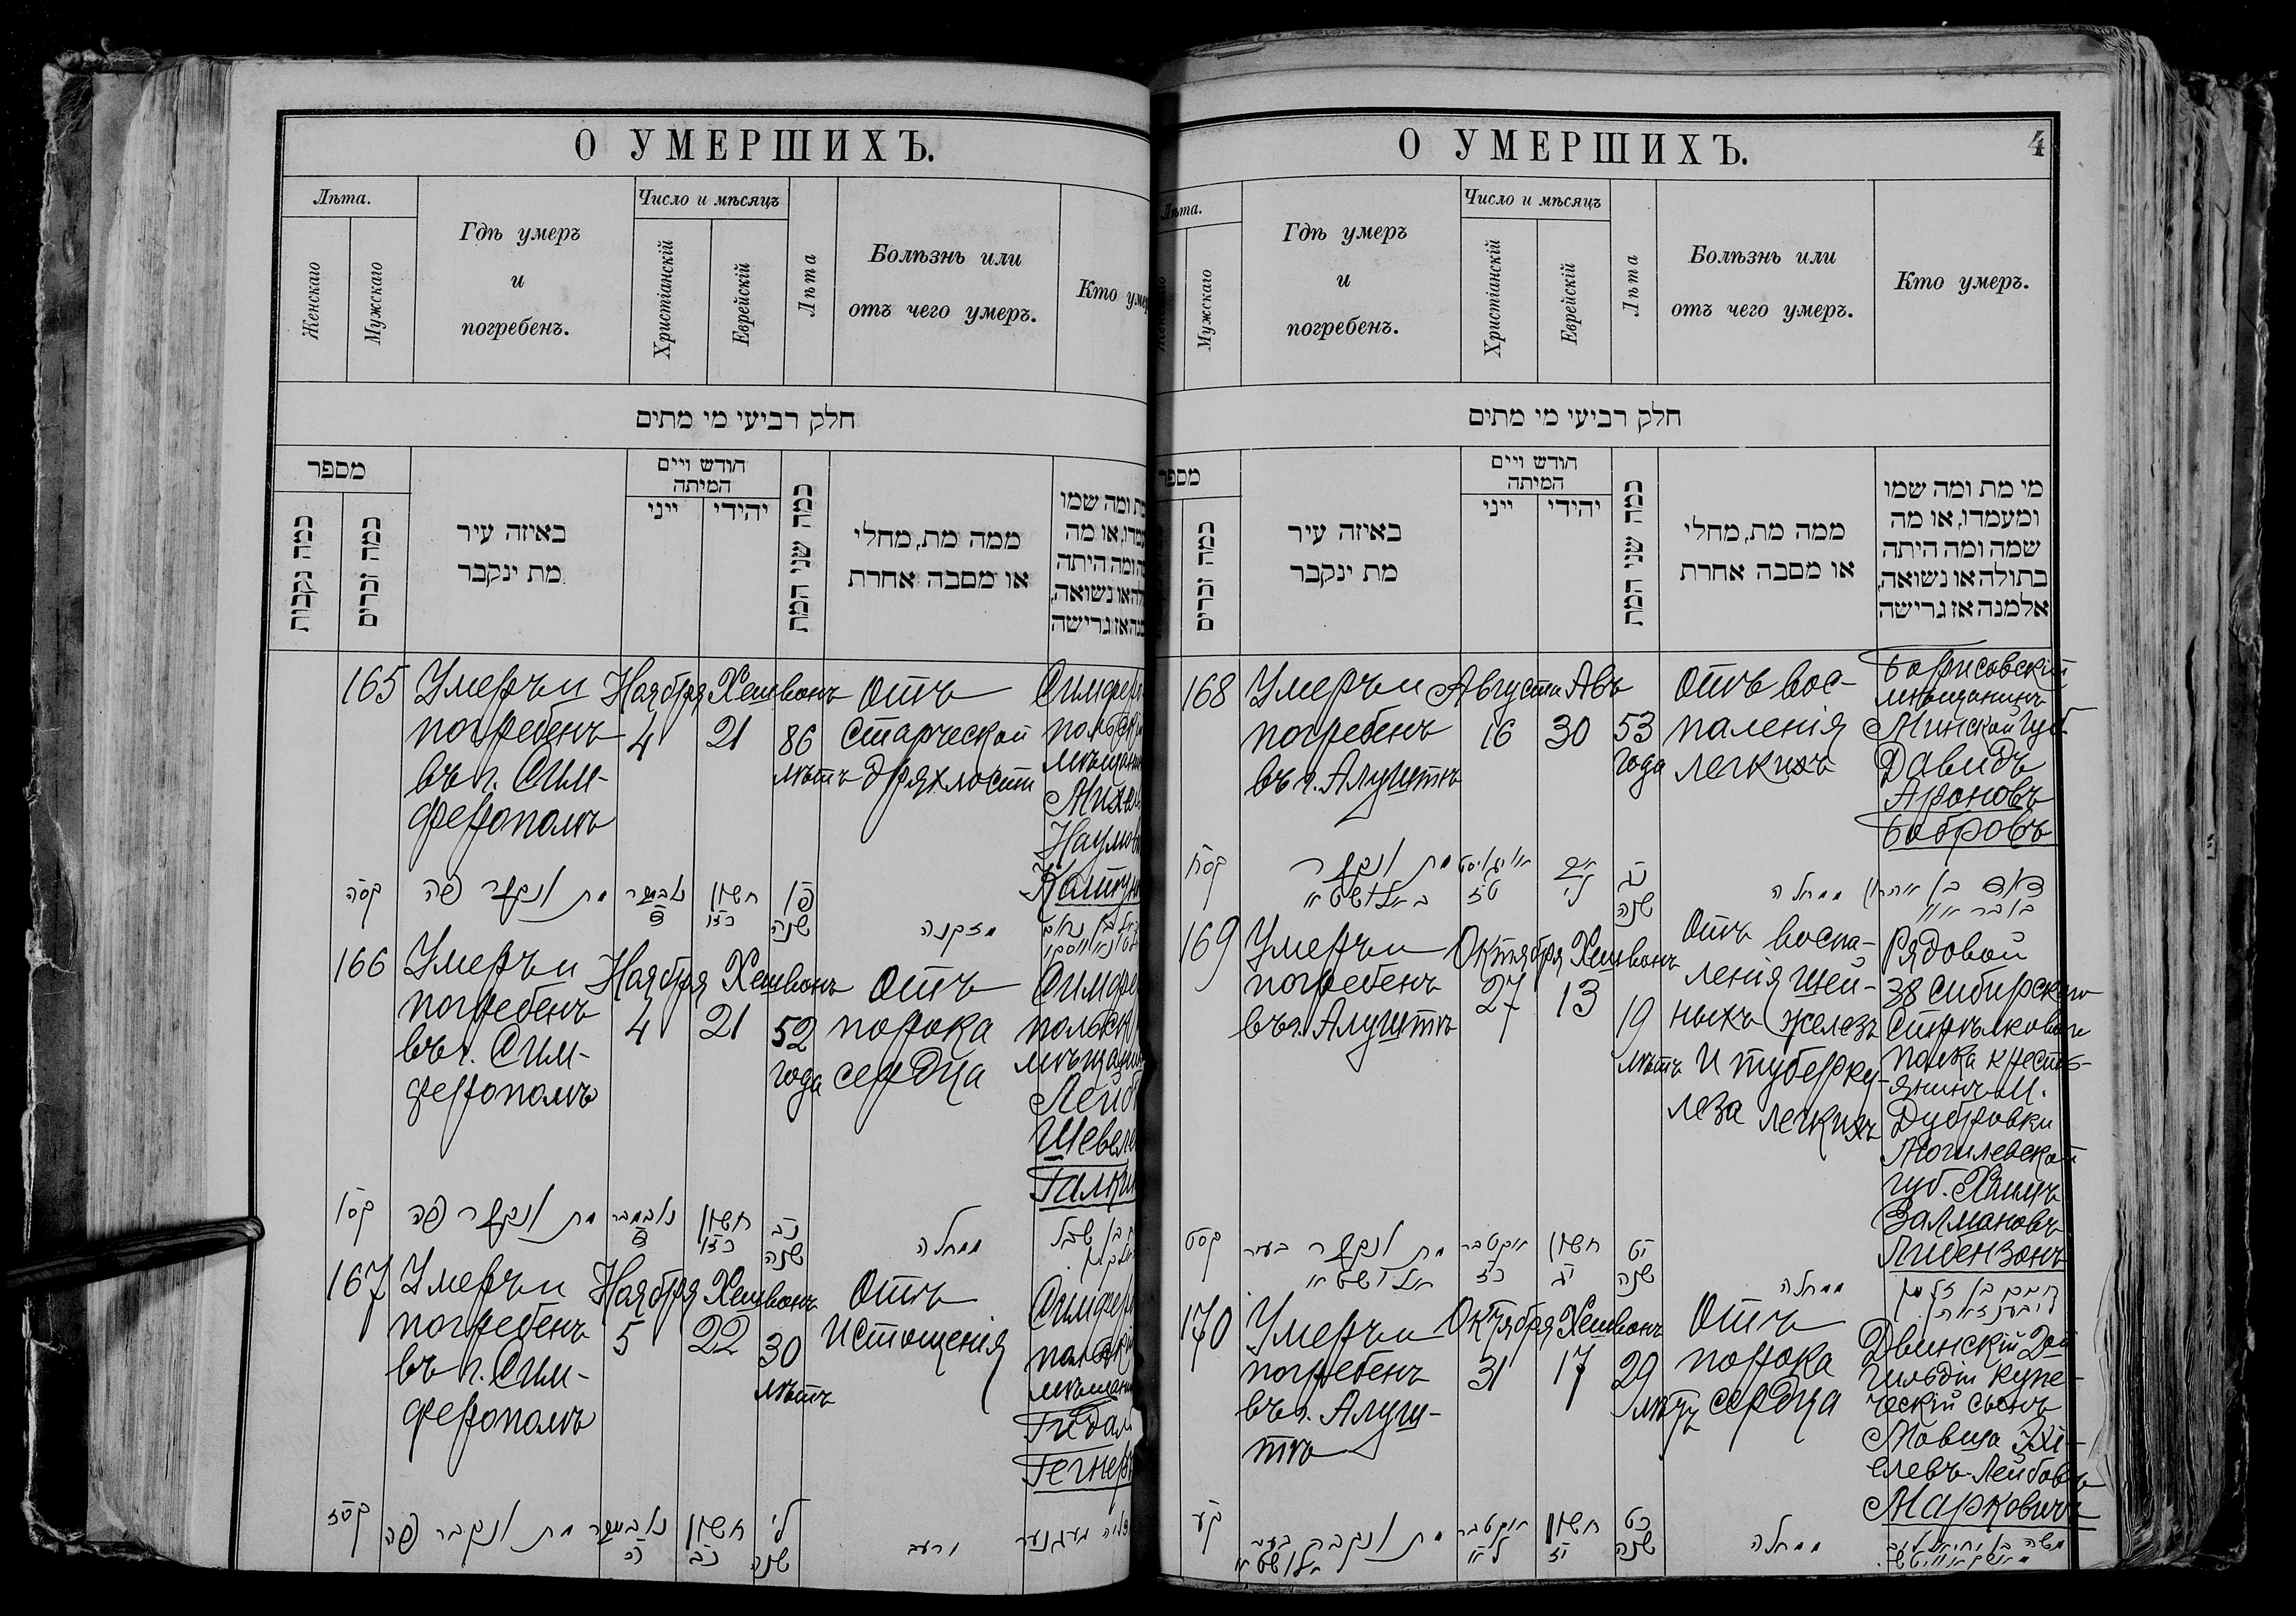 О УМЕРШИХЪ.
Лѣта.
Женскаго
Мужскаго
Гдѣ умеръ
и
погребенъ.
Число и мѣсяцъ
Христіанскій
Еврейскій
Лѣта
Болѣзнь или
отъ чего умеръ.
Кто умер
חלק רביעי מי מתים
מספר
כמה נקבות
כמה זכרים
באיזה עיר
מת ינקבר
חודש ויים
המיתה
ייני
יהודי
כמה שני המת
ממה מת, מחלי
או מסבה אחרת
מת ומה שמו
עמדו, או מה
ומה היתה
או נשואה,
אז גרישה
165
Умеръ и
погребенъ
въ г. Сим-
ферополѣ
Ноября
4
Хешвонъ
21
86
лѣтъ
Отъ
старческой
дряхлости
Симферо
польскій
мѣщанин
Михел
Наумов
קסה
מת ונקבר פה
נאבמבר
ד
חשון
כא
פו
שנה
מזקנה
166
Умеръ и
погребенъ
въ г. Сим-
ферополѣ
Ноября
4
Хешвонъ
21
52
года
Отъ
порока
сердца
Симфе
польск
мѣщани
Лейб
Шевеле
Галки
קסו
מת ונקבר פה
נאבמבר
ד
חשון
כא
נב
שנה
ממחלה
167
Умеръ и
погребенъ
въ г. Сим-
ферополѣ
Ноября
5
Хешвонъ
22
30
лѣтъ
Отъ
истощенія
Симферо
польскій
мѣщанин
Гедал
Гегнеръ
קסז
מת ונקבר פה
נאבמבר
ה
חשון
כב
ל
שנה
О УМЕРШИХЪ.
4
Лѣта.
Мужскаго
Гдѣ умеръ
и
погребенъ.
Число и мѣсяцъ
Христіанскій
Еврейскій
Лѣта
Болѣзнь или
отъ чего умеръ.
Кто умеръ.
חלק רביעי מי מתים
מספר
כמה זכרים
באיזה עיר
מת ינקבר
חודש ויים
המיתה
ייני
יהודי
כמה שני המת
ממה מת, מחלי
או מסבה אחרת
מי מת ומה שמו
ומעמדו, או מה
שמה ומה היתה
בתולה או נשואה,
אלמנה אז גרישה
168
Умеръ и
погребенъ
въ г. Алуштѣ
Августа
16
Авъ
30
53
года
Отъ вос-
паленія
легкихъ
Борисовскій
мѣщанинъ
Минской губ.
Давидъ
Ароновъ
Бобровъ
קסח
מת ונקבר
באלושטא
אויגוסט
טז
אב
ל
נג
שנה
ממחלה
דוד בן אהרון
באבראוו
169
Умеръ и
погребенъ
въ г. Алуштѣ
Октября
27
Хешвонъ
13
19
лѣтъ
Отъ воспа-
ленія шей-
ныхъ железъ
и туберку-
леза легкихъ
Рядовой
38 Сибирскаго
Стрѣлковаго
полка кресть-
янинъ м.
Дубровки
Могилевской
губ. Хаимъ
Залмановъ
Либензонъ
קסט
מת ונקבר בעיר
אלושטא
אקטבר
כז
חשון
יג
יט
שנה
ממחלה
חיים בן זלמן
ליבענזאהן
170
Умеръ и
погребенъ
въ г. Алуш-
тѣ
Октября
31
Хешвонъ
17
29
лѣтъ
Отъ
порока
сердца
Двинскій 2ой
гильдіи купе-
ческій сынъ
Мовша Ихі-
елевъ-Лейбовъ
Марковичъ
קע
מת ונקבר בעיר
אלושטא
אקטבר
לא
חשון
יז
כט
שנה
ממחלה